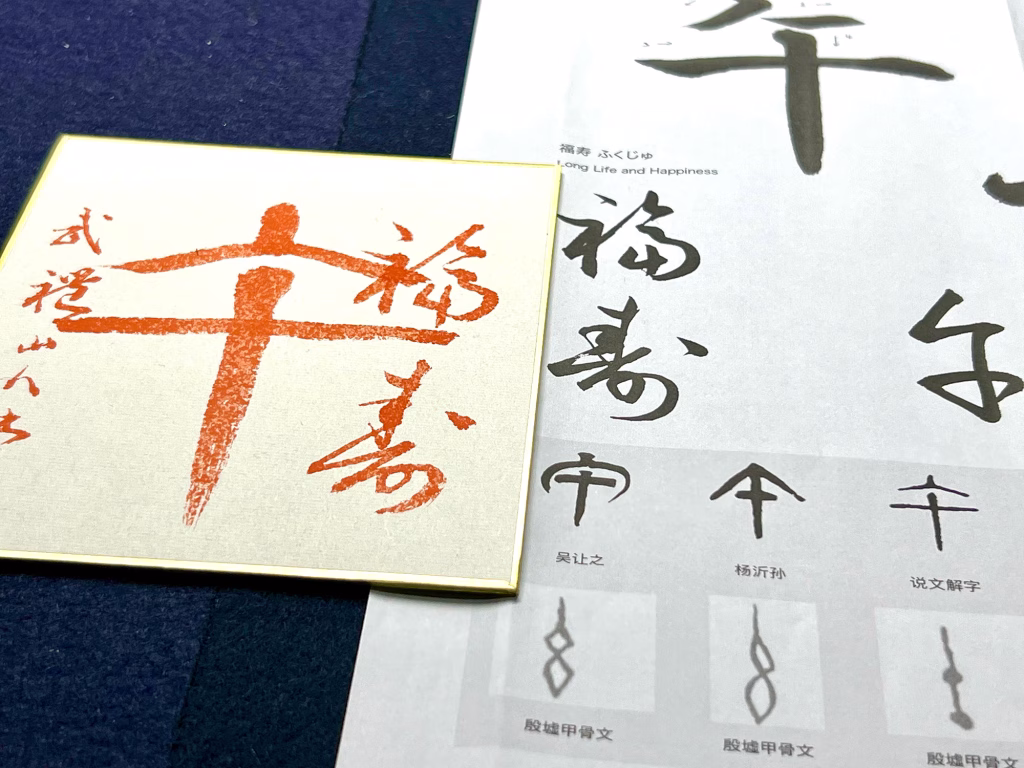 福寿
午
武禮山人
午
福寿 ふくじゅ
Long Life and Happiness
福寿
午
午 午 午
吴让之 杨沂孙 说文解字
殷墟甲骨文 殷墟甲骨文 殷墟甲骨文